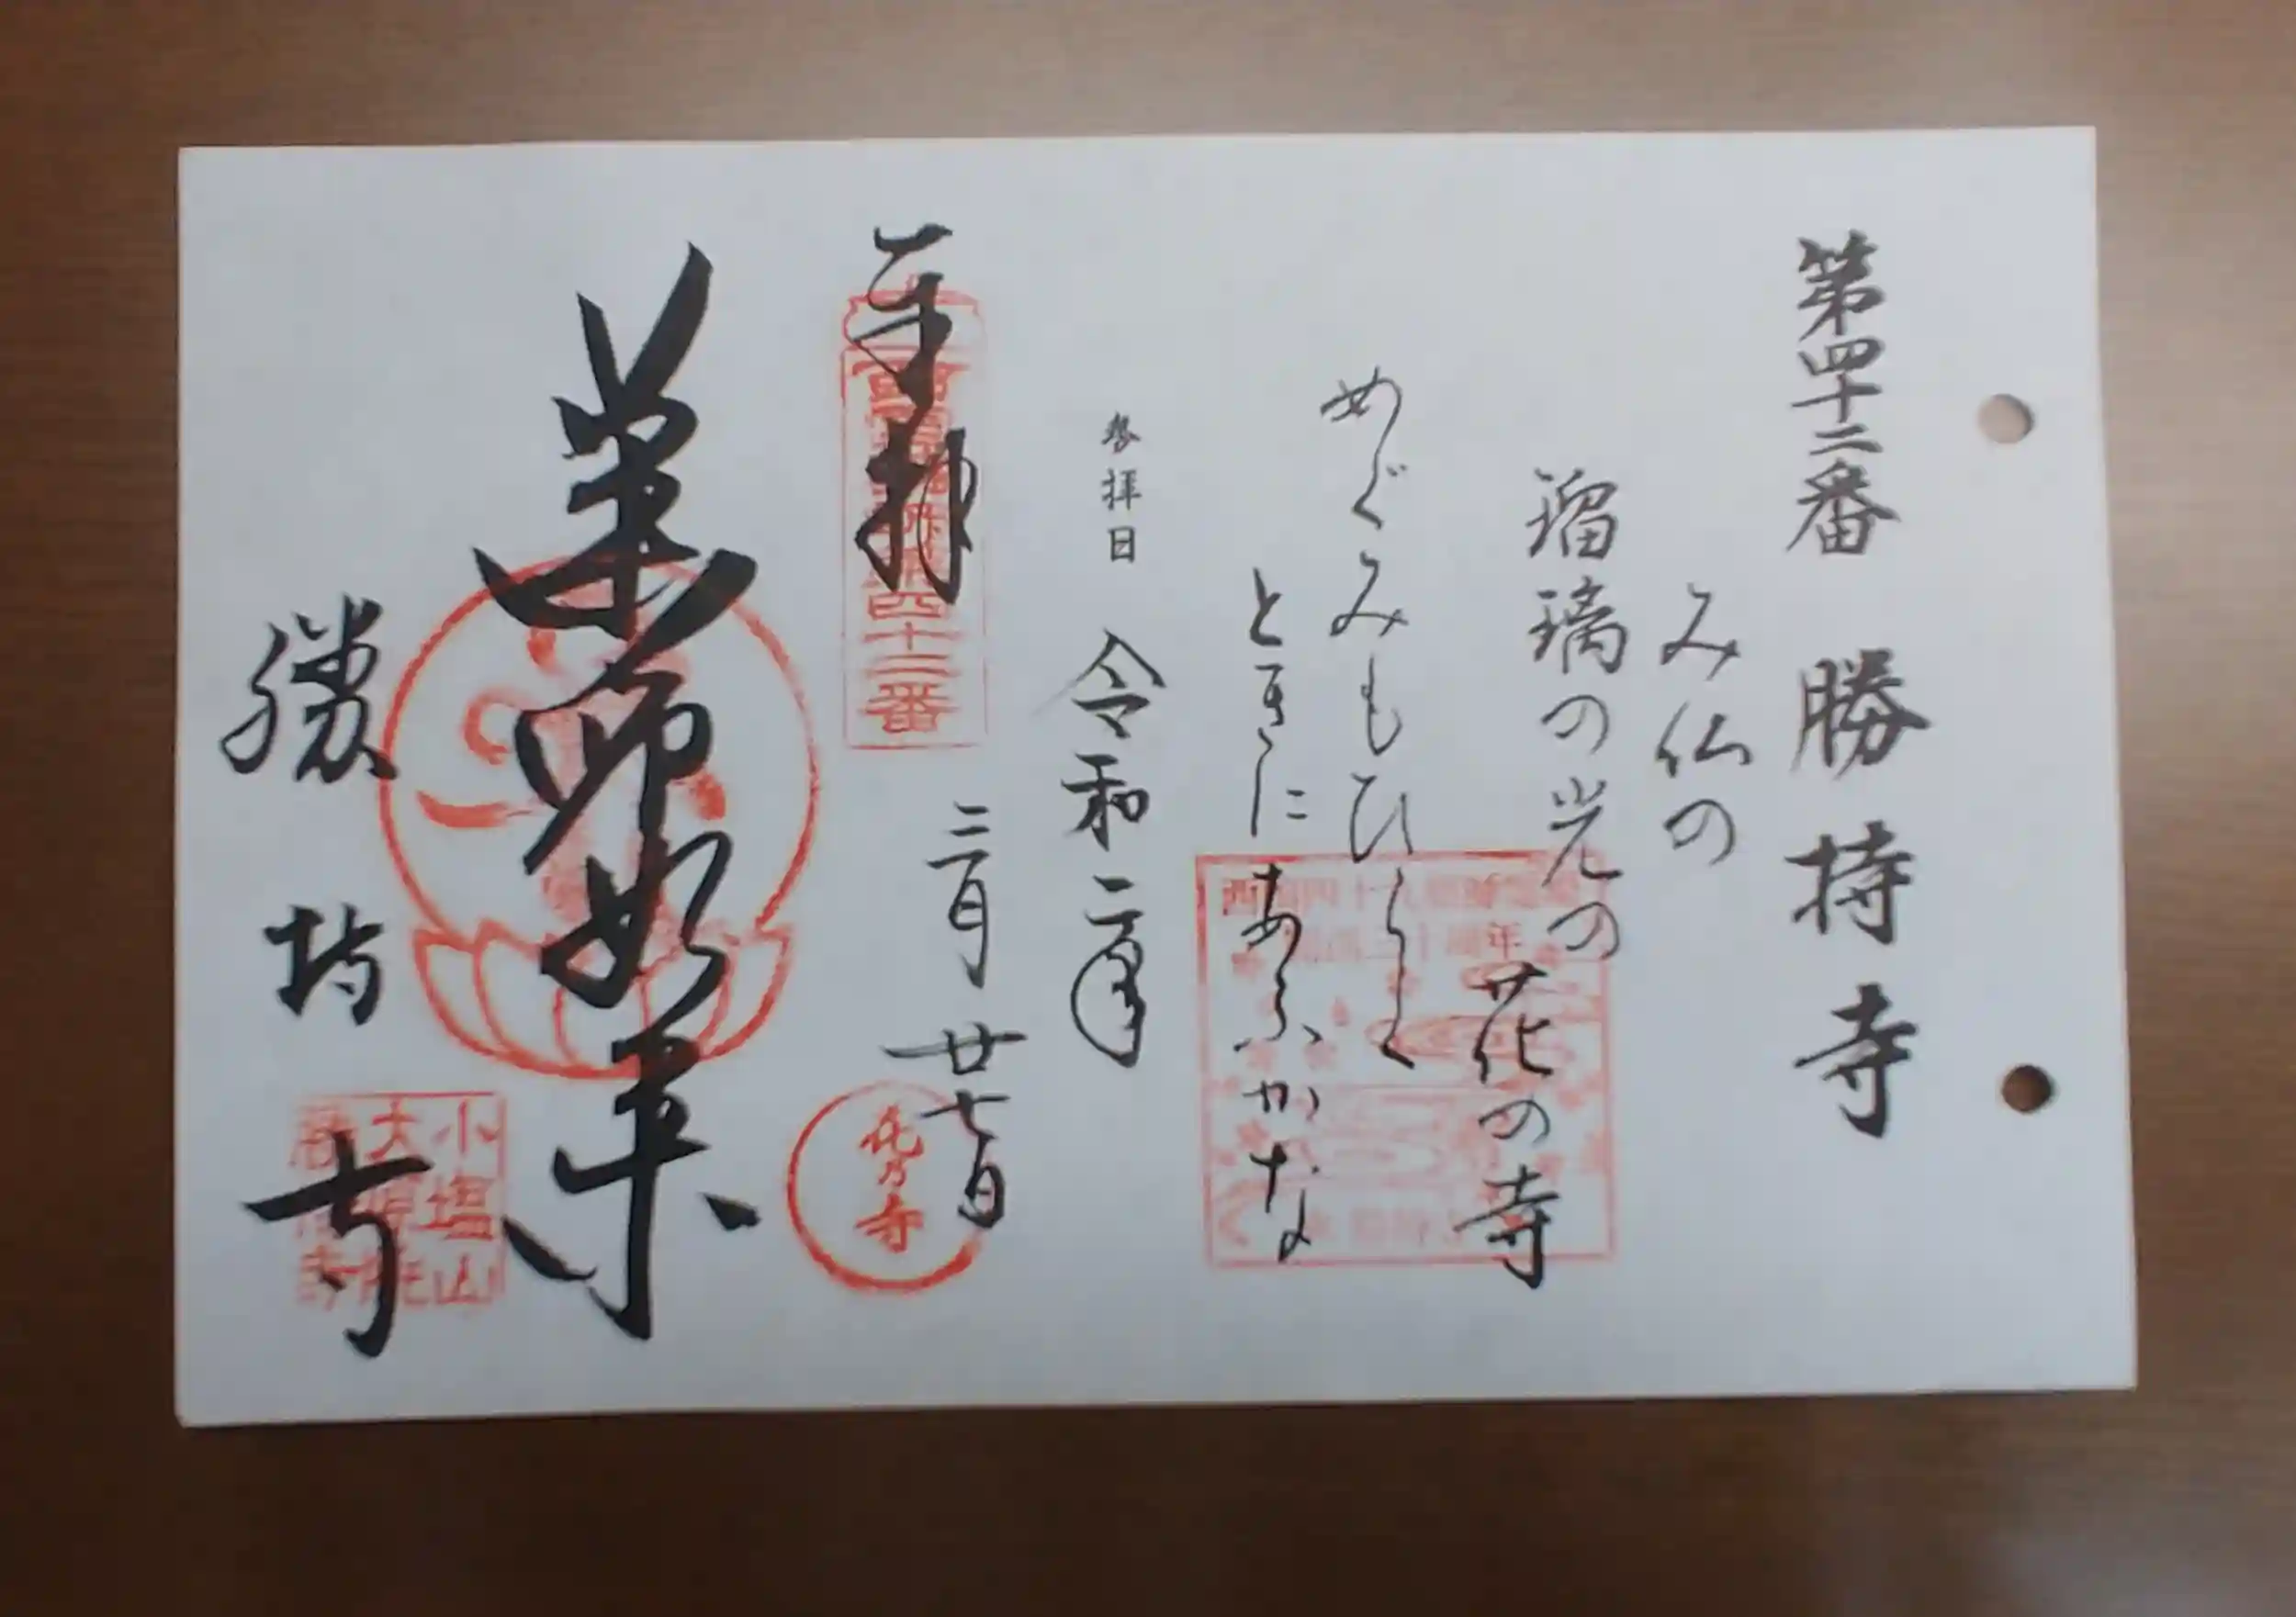 第四十二番 勝持寺
み仏の
瑠璃の光の
花の寺
めぐみもひらく
ときにあふかな
参拝日 令和二年
三月廿七日
奉拝
西国薬師第四十二番
花乃寺
薬師如来
勝持寺
小塩山
大原院
勝持寺